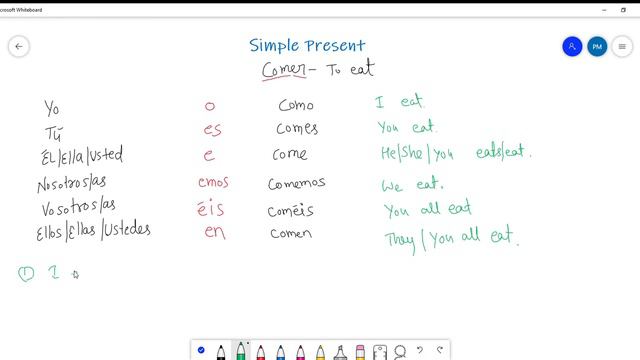 Microsoft Whiteboard
PM
Simple Present
Comer - To eat
Yo o Como I eat.
Tú es Comes You eat.
ÉL/Ella/Usted e Come He/She/You eats/eat.
Nosotros/as emos Comemos We eat.
Vosotros/as éis Coméis You all eat
Ellos/Ellas/Ustedes en Comen They/You all eat.
① I